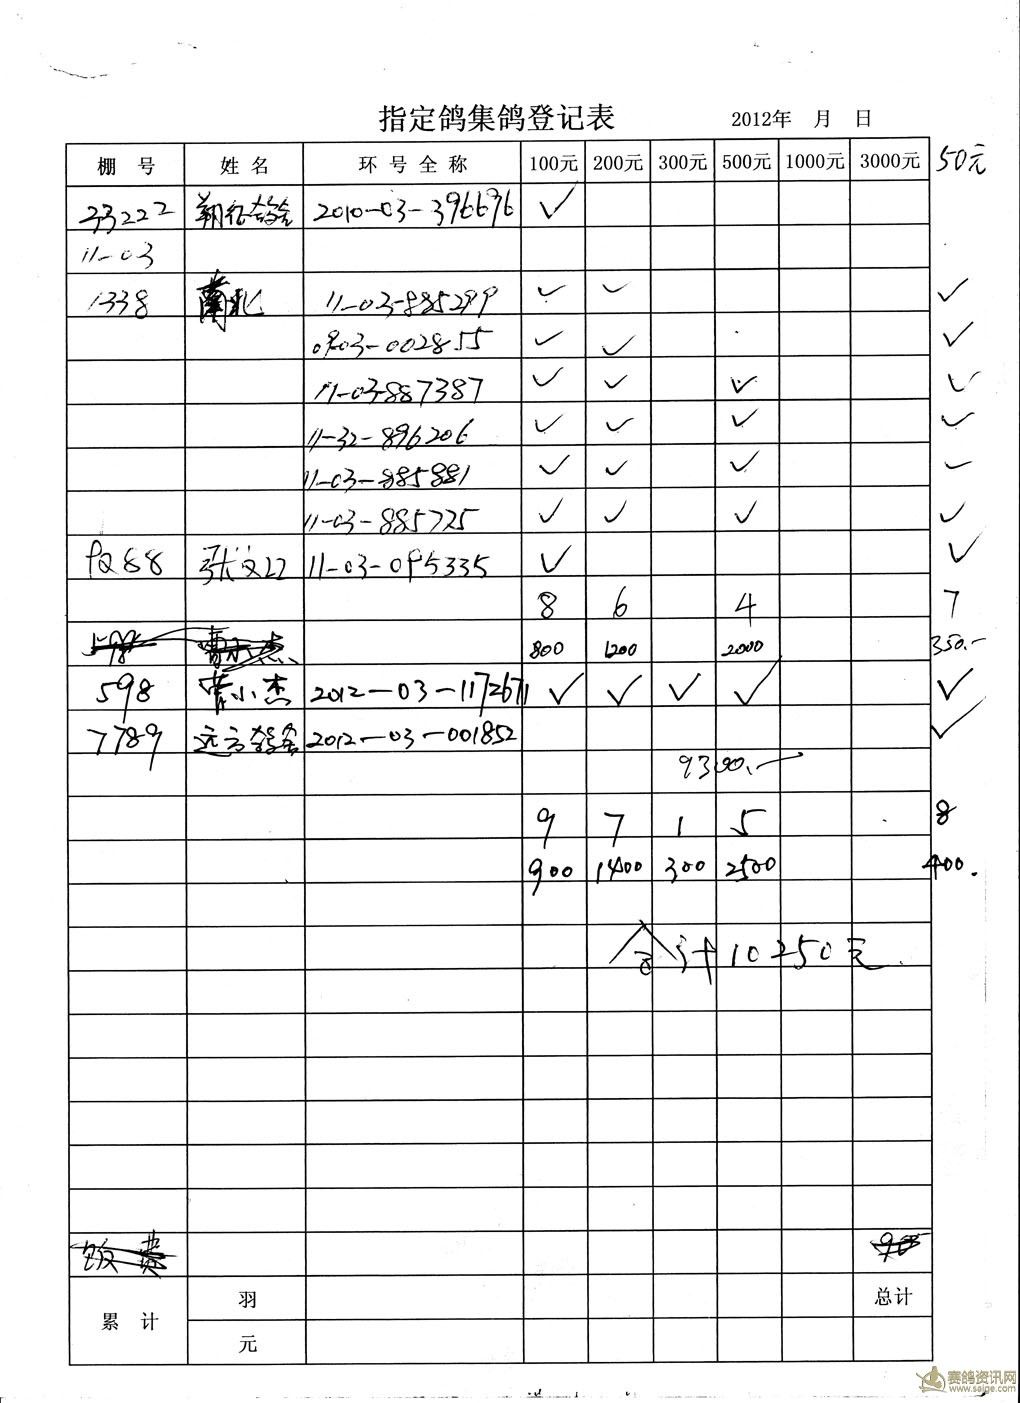 指定鸽集鸽登记表 2012年 月 日
棚 号 姓 名 环 号 全 称 100元 200元 300元 500元 1000元 3000元 50元
23222 2010-03-396696 ✓
11-03
1338 南北 11-03-885299 ✓ ✓ ✓
0903-002855 ✓ ✓ ✓
11-03-887387 ✓ ✓ ✓ ✓
11-32-896206 ✓ ✓ ✓ ✓
11-03-885881 ✓ ✓ ✓ ✓
11-03-885725 ✓ ✓ ✓ ✓
11-03-095335 ✓ ✓
8 6 4 7
598 曹小杰 800 1200 2000 350.-
598 曹小杰 2012-03-1172671 ✓ ✓ ✓ ✓ ✓
7789 远方鸽舍 2012-03-001852 ✓
9300.-
9 7 1 5 8
900 1400 300 2500 400.
合计10250元
饭 费
累 计 羽 总计
元
赛鸽资讯网
www.saige.com